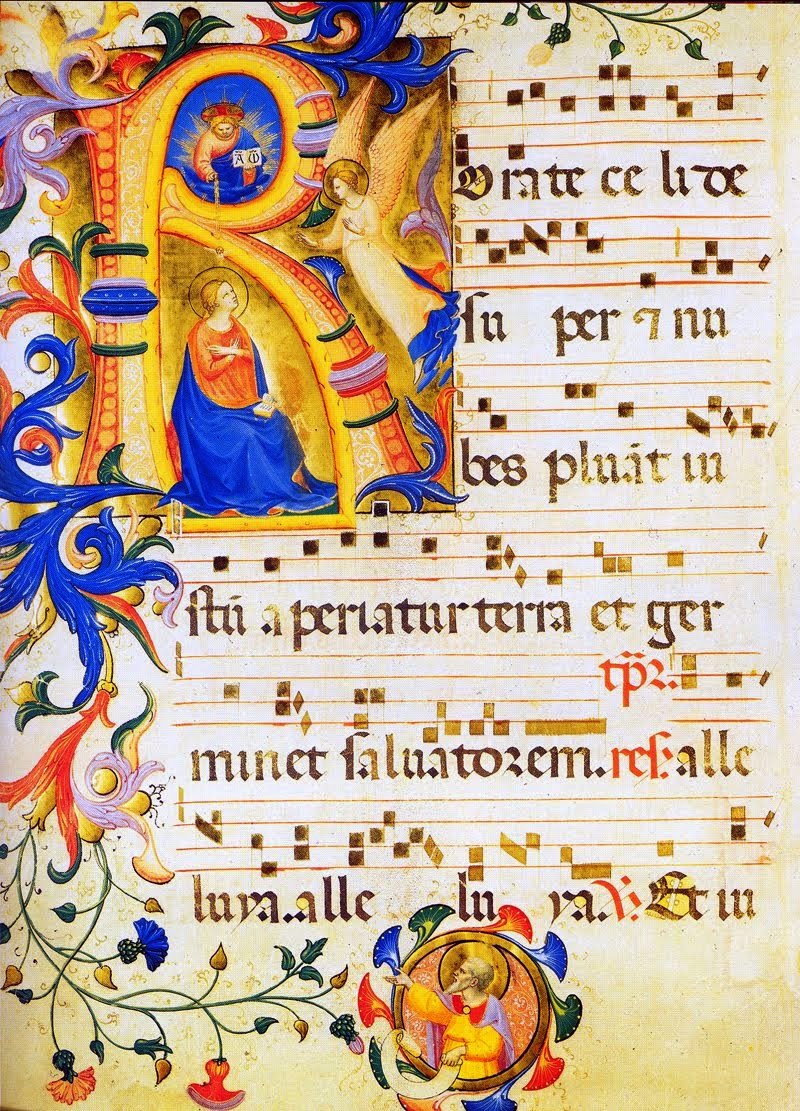 A ω
R Orate ce li de
su per ⁊ nu
bes pluāt iu
stū a periatur terra et ger
tp̄r.
minet saluatorem. res. alle
luya. alle lu ya. V. Et iu